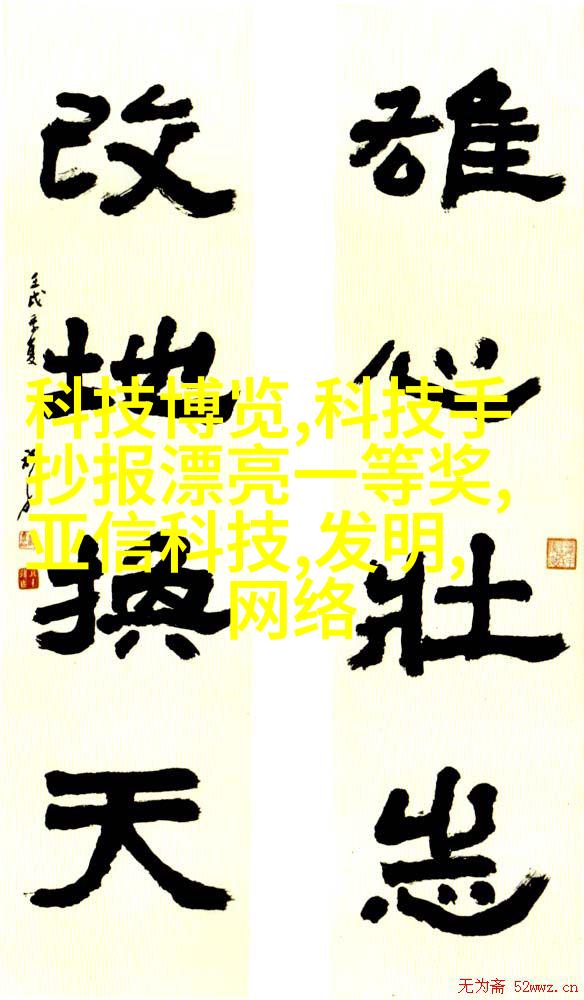 雄心壮志
改地换天
壬戌季夏
科技博览,科技手
抄报漂亮一等奖,
亚信科技,发明,
网络
无为斋 52wwz.cn